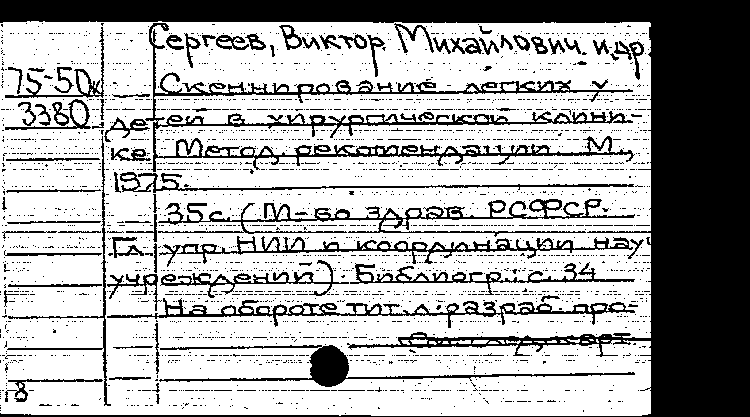 Сергеев, Виктор Михайлович и др.
75-50к
3380
Сканирование легких у
детей в хирургической клини-
ке. Метод. рекомендации. М.,
1975.
35 с. (М-во здрав. РСФСР.
Гл. упр. НИИ и координации науч
учреждений). Библиогр.: с. 34
На обороте тит. л.: разраб. про-
См. след. карт.
8